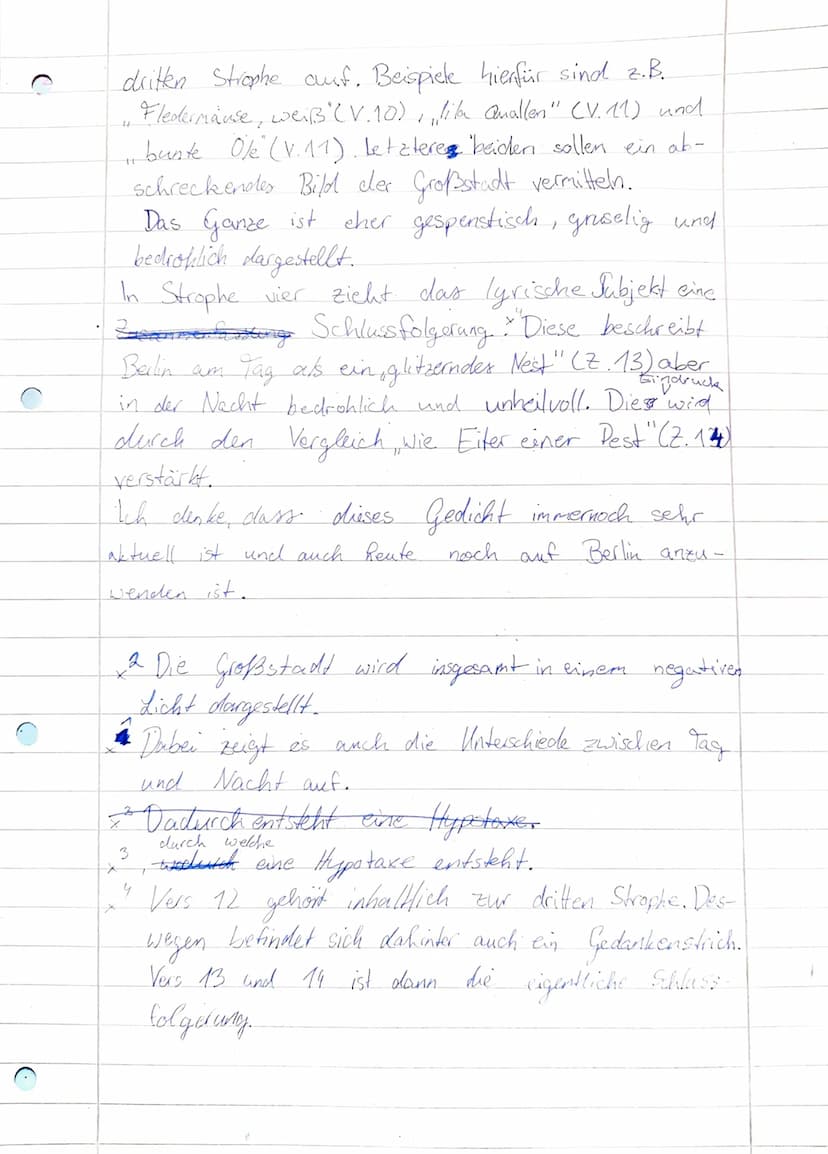 dritten Strophe auf. Beispiele hierfür sind z.B.
„Fledermäuse, weiß" (V.10), „lila Quallen" (V.11) und
„bunte Öle" (V.11). Letztere beiden sollen ein ab-
schreckendes Bild der Großstadt vermitteln.
Das Ganze ist eher gespenstisch, gruselig und
bedrohlich dargestellt.
In Strophe vier zieht das lyrische Subjekt eine
Zusammenfassung Schlussfolgerung.x⁴ Diese beschreibt
Berlin am Tag als ein „glitzerndes Nest" (Z.13) aber
in der Nacht bedrohlich und unheilvoll. Dies Eindruck wird
durch den Vergleich „wie Eiter einer Pest" (Z.14)
verstärkt.
Ich denke, dass dieses Gedicht immernoch sehr
aktuell ist und auch heute noch auf Berlin anzu-
wenden ist.
x² Die Großstadt wird insgesamt in einem negativen
Licht dargestellt.
x¹ Dabei zeigt es auch die Unterschiede zwischen Tag
und Nacht auf.
x³ Dadurch entsteht eine Hypotaxe.
durch welche
x³, wodurch eine Hypotaxe entsteht.
x⁴ Vers 12 gehört inhaltlich zur dritten Strophe. Des-
wegen befindet sich dahinter auch ein Gedankenstrich.
Vers 13 und 14 ist dann die eigentliche Schluss-
folgerung.